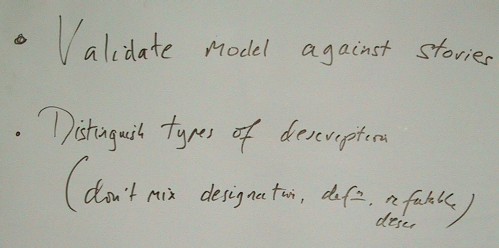 • Validate model against stories
• Distinguish types of description
(don't mix designation, defn, refutable
desc)